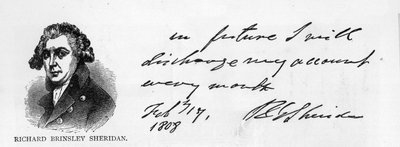 in future I will
discharge my account
every month
Feby 17,
1808
RB Sheridan
RICHARD BRINSLEY SHERIDAN.